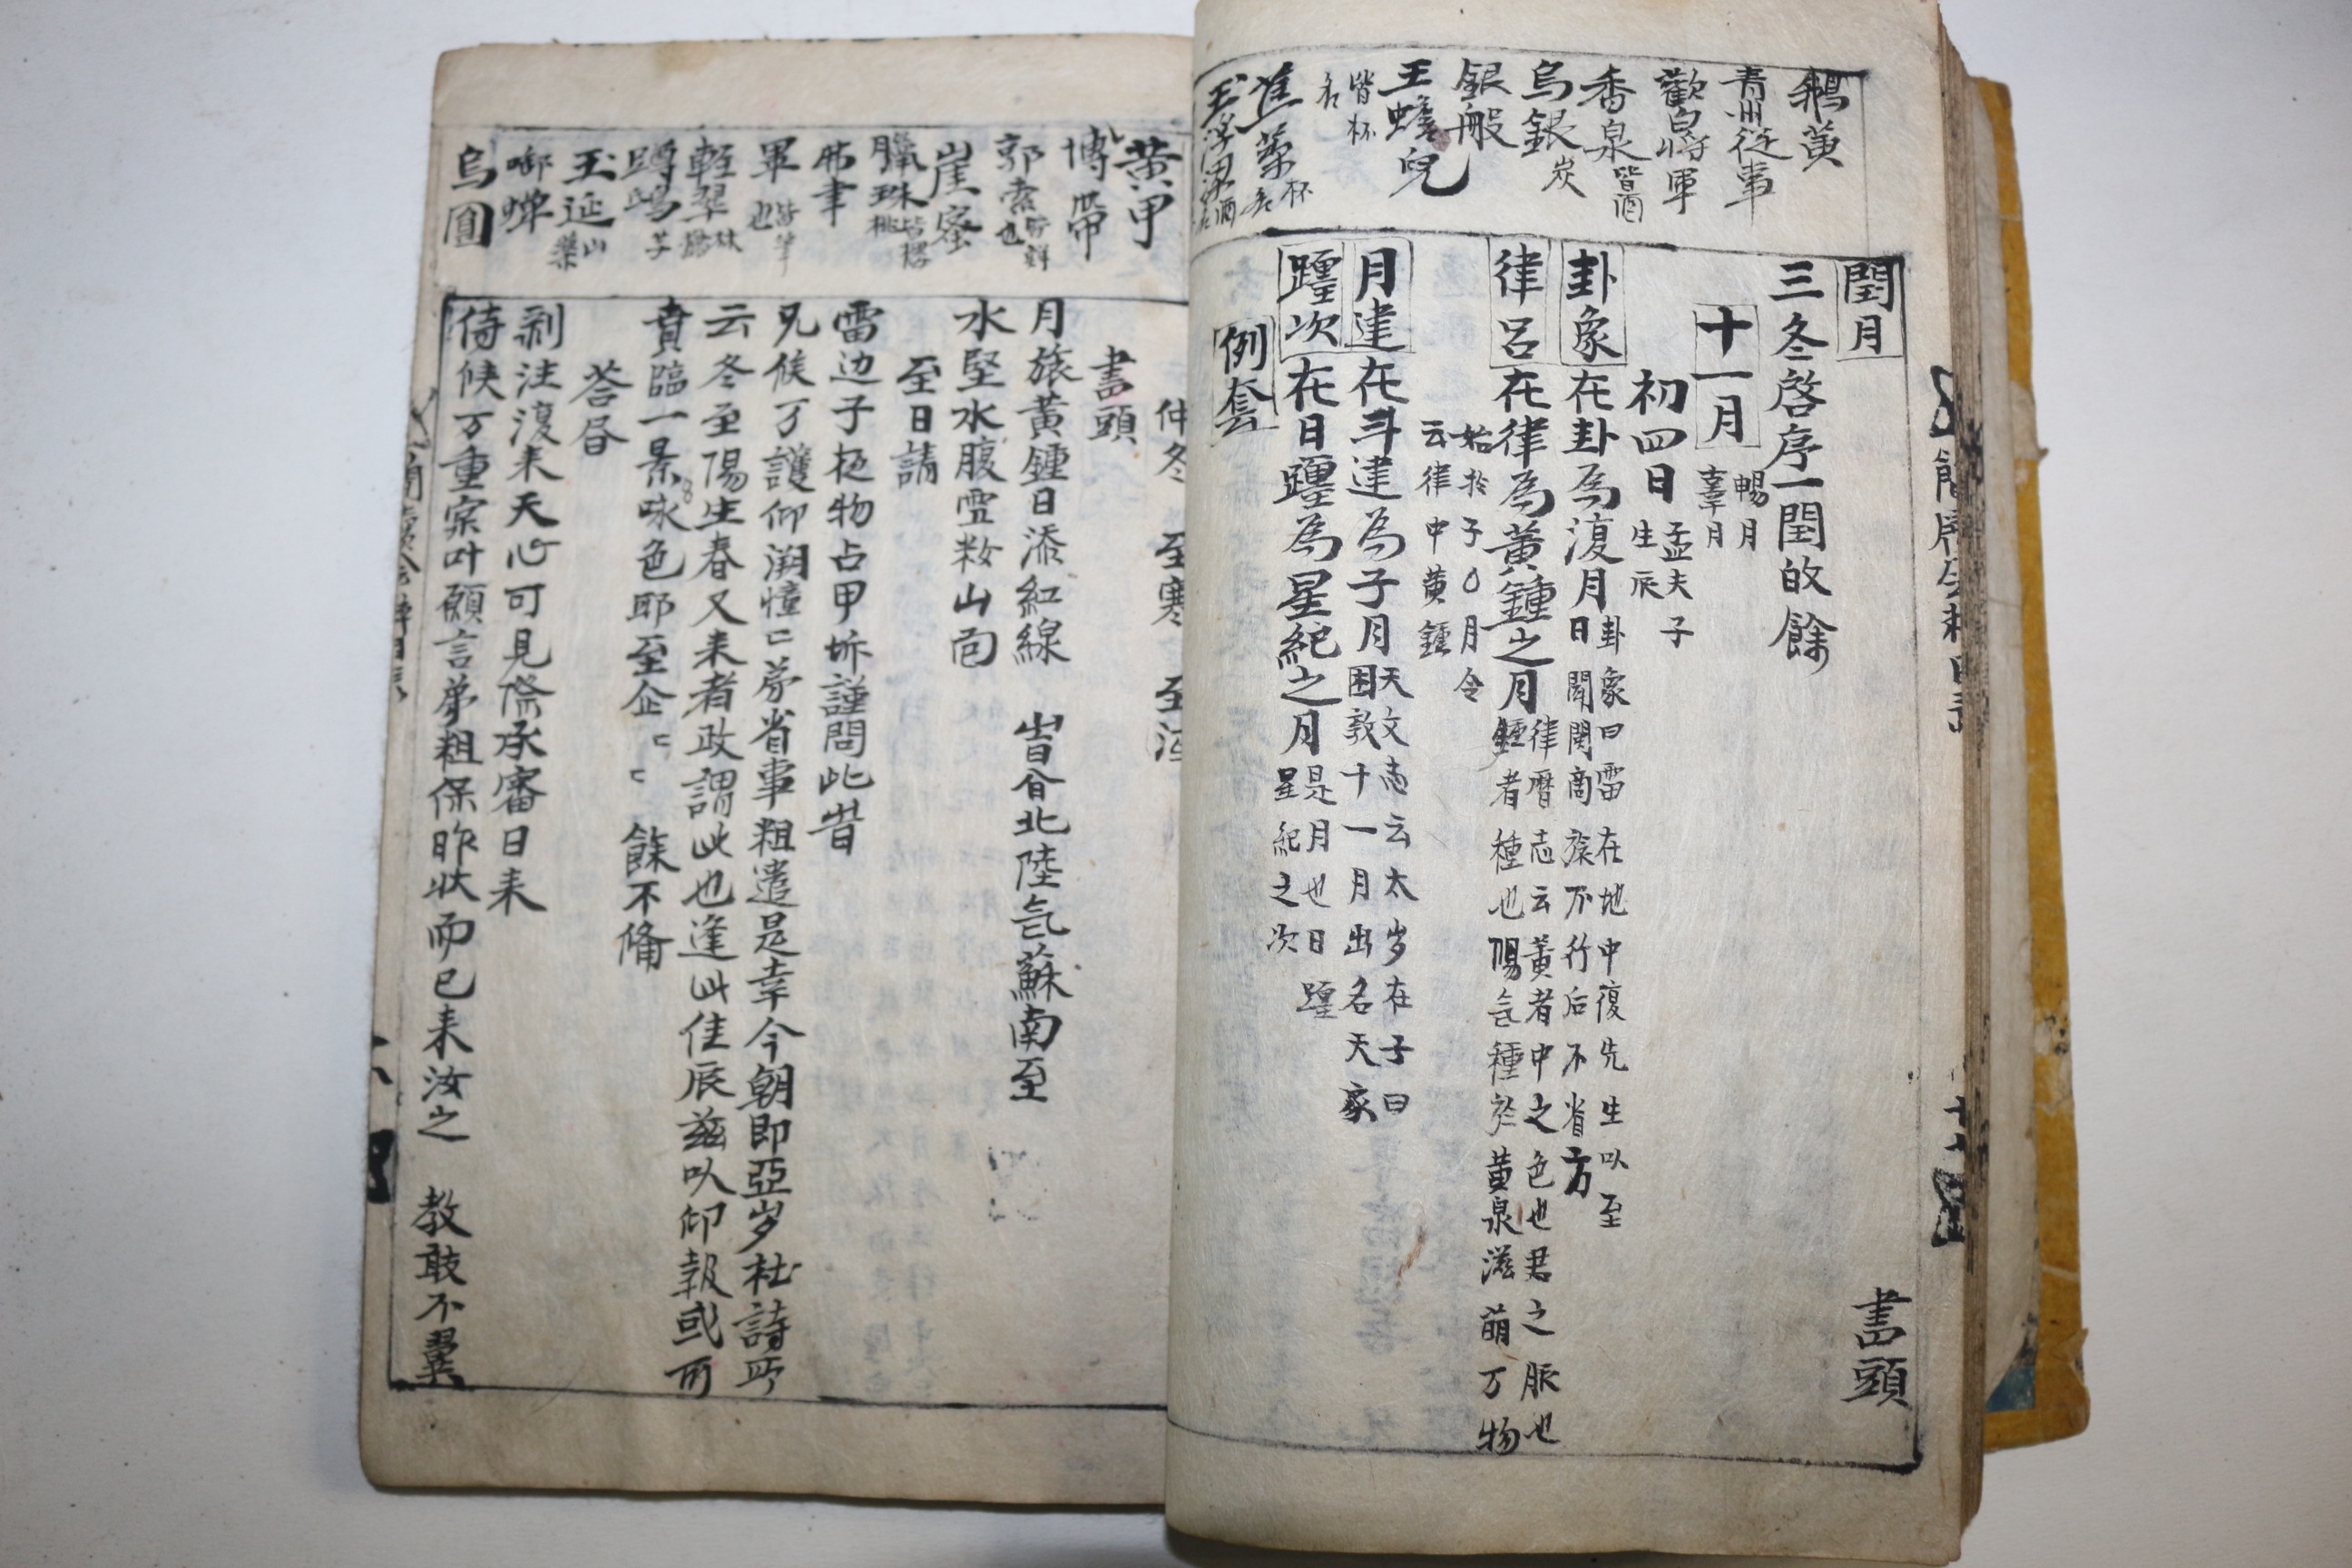 鵝黃
青州從事
歡伯將軍
香泉 皆酒
烏銀 炭
銀般
玉蟾兒
皆杯
名
蕉葉 杯名
閏月
書頭
三冬啓序一閏收餘
十一月 暢月 辜月
初四日 孟夫子 生辰
卦象 在卦為復月 卦象曰雷在地中復先生以至
日閉関商旅不行后不省方
律呂 在律為黃鍾之月 律曆志云黃者中之色也君之脈也
鍾者種也陽気種於黃泉滋萌万物
始於子○月令
云律中黃鍾
月建 在斗建為子月 天文志云太岁在子曰
困敦十一月出名天家
躔次 在日躔為星紀之月 是月也日躔
星紀之次
例套
黃甲
博帶
郭索 皆蟹也
崖蜜
驪珠 皆櫻桃
弗聿
畢 皆筆也
輕翠
蹲鴟 芋
玉延 山藥
啣蟬
烏圓
仲冬 至寒
書頭
月旅黃鍾日添紅線 岩谷北陸气蘇南至
水堅水腹雪粧山面
至日請
雷边子挺物占甲坼謹問此時
兄候万護仰溯憧〻弟省事粗遣是幸今朝即亞岁杜詩所
云冬至陽生春又来者政謂此也逢此佳辰茲以仰報或可
賁臨一景咏色耶至企〻〻 餘不備
答昏
剥注復来天心可見際承審日来
侍候万重寀叶願言弟粗保昨状而已来汝之 教敢不翼